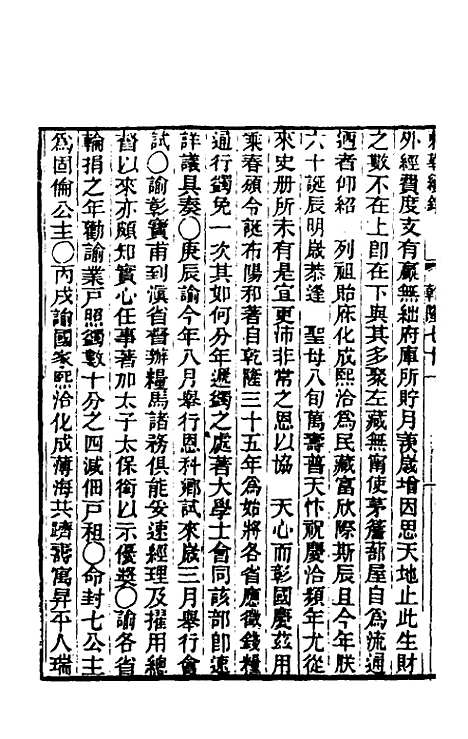 外經費度支有贏無絀府庫所貯月羨歲增因思天地止此生財
之數不在上卽在下與其多聚左藏無甯使茅簷蔀屋自爲流通
迺者仰紹 列祖貽庥化成熙洽爲民藏富欣際斯辰且今年朕
六十誕辰明歲恭逢 聖母八旬萬壽普天忭祝慶洽頻年尤從
來史册所未有是宜更沛非常之恩以協 天心而彰國慶茲用
乘春頒令誕布陽和著自乾隆三十五年爲始將各省應徵錢糧
通行蠲免一次其如何分年遞蠲之處著大學士會同該部卽速
詳議具奏〇庚辰諭今年八月舉行恩科鄉試來歲三月舉行會
試〇諭彰寶甫到滇省督辦糧馬諸務俱能妥速經理及擢用總
督以來亦頗知實心任事著加太子太保銜以示優獎〇諭各省
輪捐之年勸諭業戶照蠲數十分之四減佃戶租〇命封七公主
爲固倫公主〇丙戌諭國家熙洽化成薄海共躋壽寓昇平人瑞